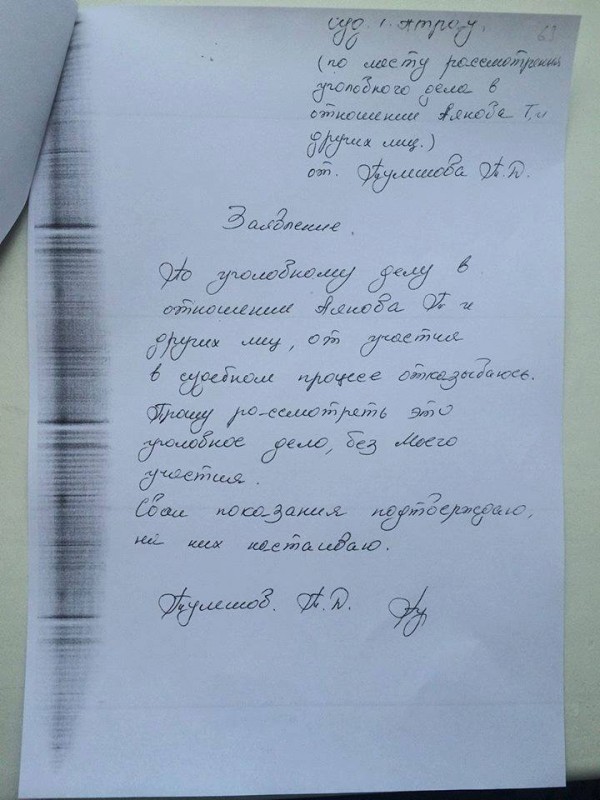 Суд г. Атырау.
(по месту рассмотрения
уголовного дела в
отношении Аякова Т. и
других лиц.)
от.
Заявление.
По уголовному делу в
отношении Аякова и
других лиц, от участия
в судебном процессе отказываюсь.
Прошу рассмотреть это
уголовное дело, без моего
участия.
Свои показания подтверждаю,
на них настаиваю.